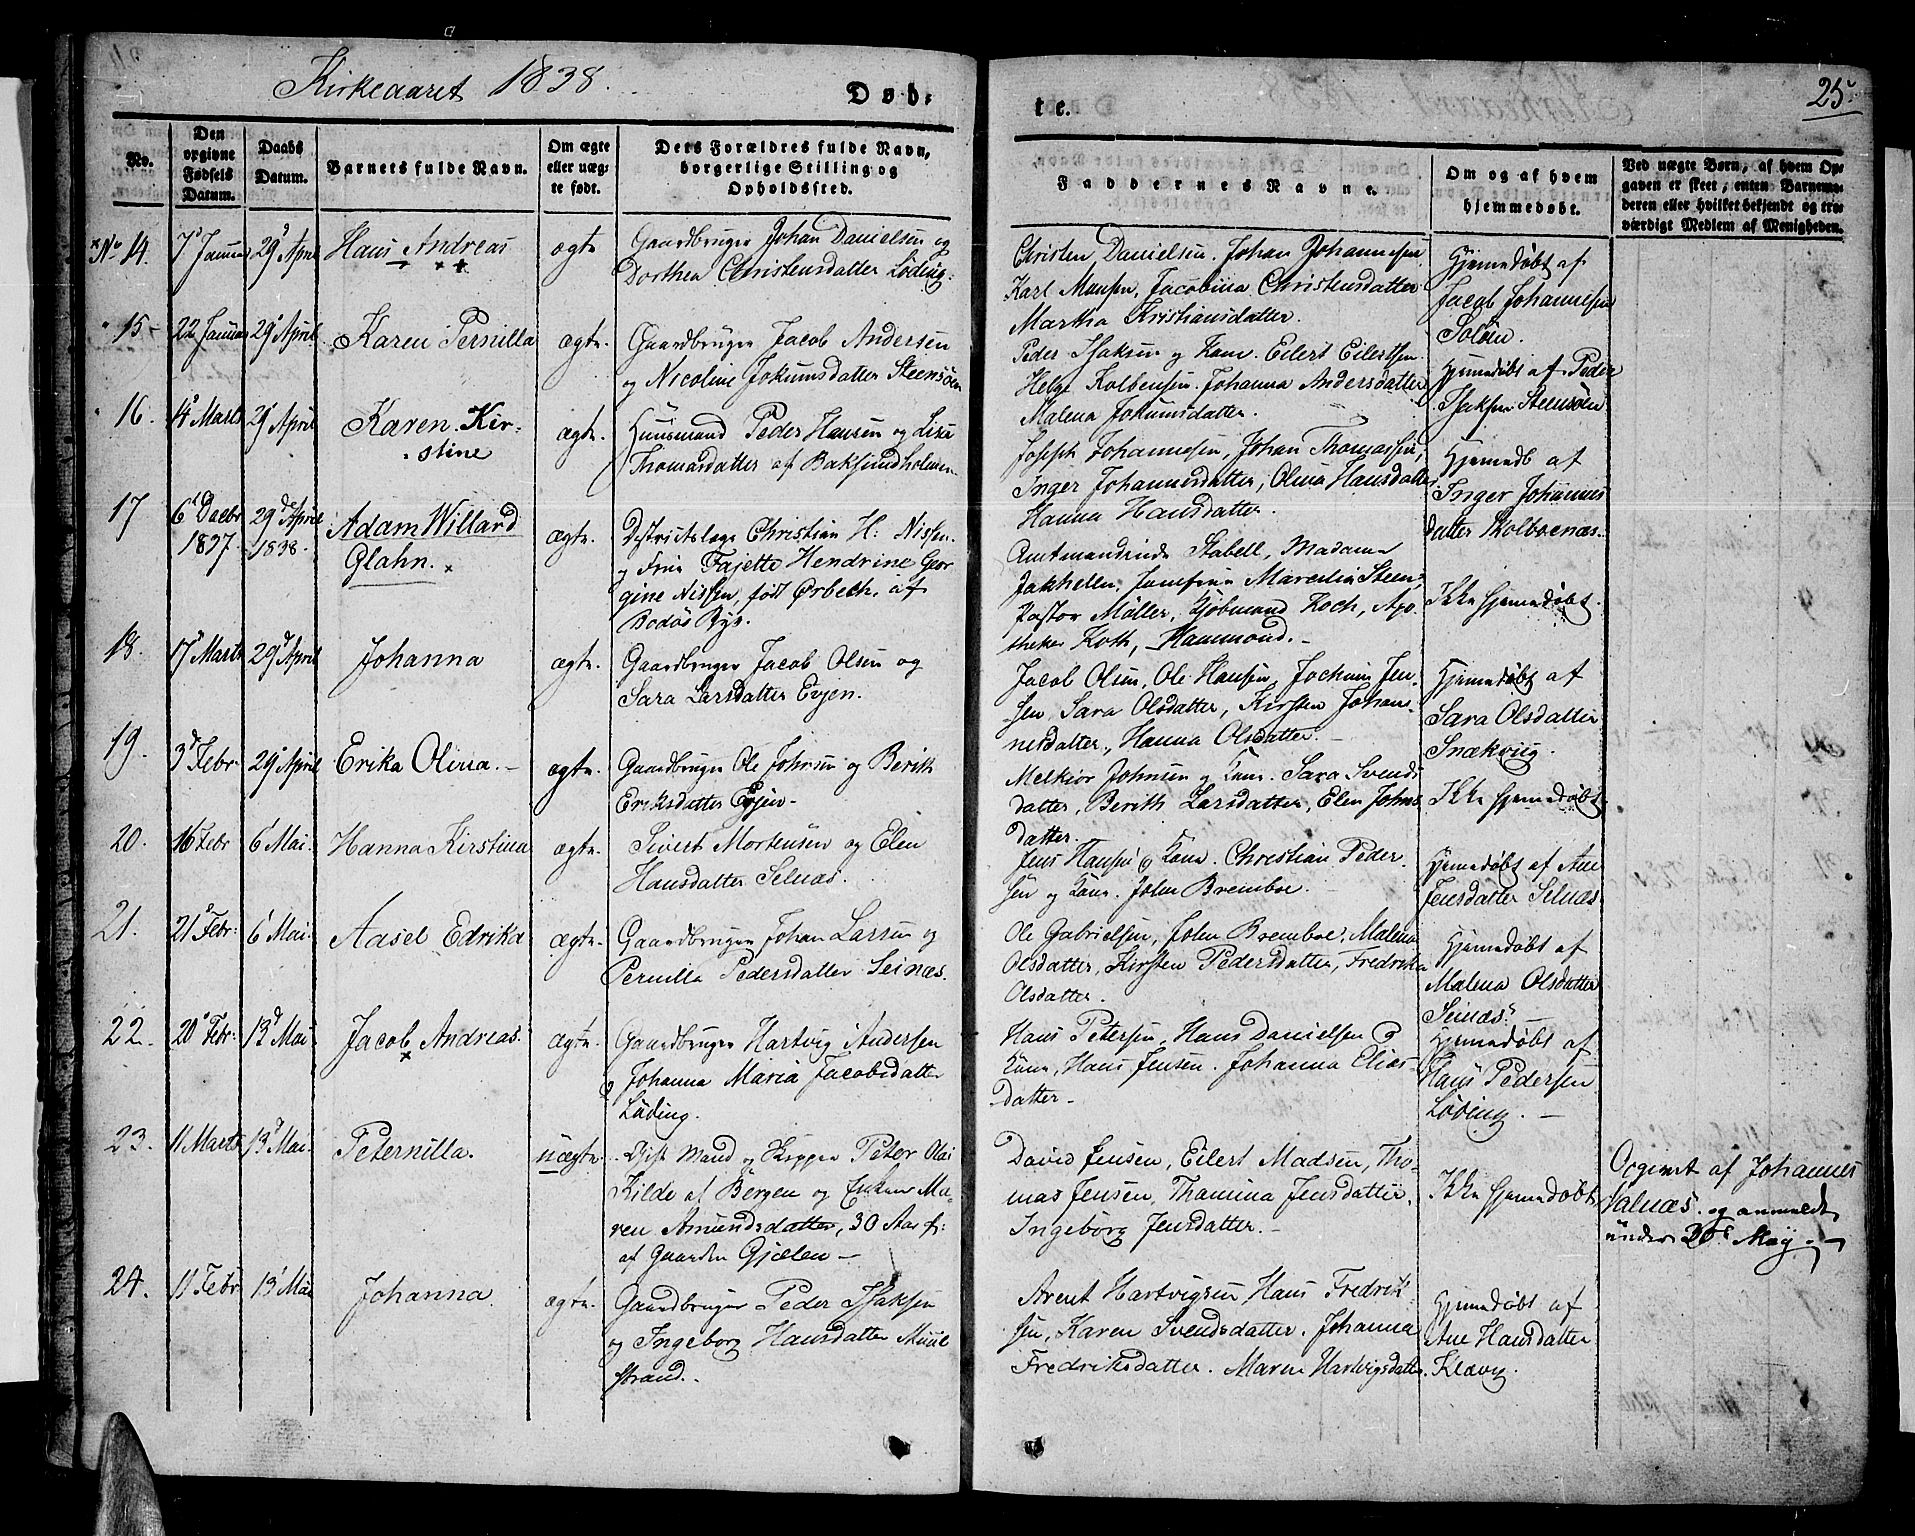 Kirkeaaret 1838.
Døb-
te.
25
No.
Den orgivne Fødsels Datum.
Daabs Datum.
Barnets fulde Navn.
Om ægte eller uæg-te født.
Dets Forældres fulde Navn, borgerlige Stilling og Opholdssted.
Faddernes Navne.
Om og af hvem hjemmedøbt.
Ved uægte Børn, af hvem Op-
gaven er skeet, enten Barnemo-
deren eller hvilket bekjendt og tro-
værdigt Medlem af Menigheden.
No 14. 7d Januar 29d April Hans Andreas ægte Gaardbruger Johan Danielsen og
Dorthea Christensdatter Löding.
Christen Danielsen. Johan Johannesen
Karl Mansen, Jacobina Christensdatter
Martha Kristiansdatter.
Hjemmedøbt af
Jacob Johannesen
Soløen.
15 22 Januar 29d April Karen Pernilla ægte. Gaardbruger Jacob Andersen
og Nicoline Jokumsdatter Steensöen
Peder Isaksen og Kone. Eilert Eilertsen.
Helge Kolbensen. Johanna Andersdatter
Malena Jokumsdatter.
Hjemmedøbt af Peder
Isaksen Steensöen
16. 4d Marts 29d April Karen Kir-
stine ægte. Huusmand Peder Hansen og Lise
Thomasdatter af Baksundholmen
Joseph Johannesen, Johan Thomassen,
Inger Johannesdatter, Olina Hansdatter
Hanna Hansdatter.
Hjemmedb af
Inger Johannes
datter Skolboenæs.
17 6d Decbr 1837. 29d April 1838. Adam Willard
Glahn. ægte. Districtslæge Christian H: Nissen
og Frue Fajette Hendrine Geor-
gine Nissen, född Ørbech, af
Bodöe Bye.
Amtmandinde Stabell, Madame
Jakhelln, Jomfrue Marcilia Steen,
Pastor Möller, Kjöbmand Koch, Apo
theker Koth, Hammond. -
Ikke hjemmedøbt.
18. 17d Marts 29d April Johanna ægte. Gaardbruger Jacob Olsen og
Sara Larsdatter Evjen.
Jacob Olsen, Ole Hansen, Jochum Jen-
sen, Sara Olsdatter, Kirsten Johan-
nesdatter, Hanna Olsdatter -
Hjemmedøbt af
Sara Olsdatter
Snækvig.
19. 3d Febr. 29d April Erika Olina. - ægte. Gaardbruger Ole Johnsen og Berith
Eriksdatter Evjen.
Melkior Johnsen og Kone. Sara Svends
datter, Berith Larsdatter, Elen Johns
datter.
Ikke hjemmedøbt.
20. 16d Febr 6d Mai. Hanna Kirstina ægte. Sivert Mortensen og Elen
Hansdatter Selnæs.
Jens Hansen og Kone. Christian Peder-
sen og Kone. John Bremboe. -
Hjemmedøbt af Ane
Jensdatter Selnæs
21. 21d Febr: 6d Mai. Aasel Edrika ægte. Gaardbruger Johan Larsen og
Pernilla Pedersdatter Seinæs.
Ole Gabrielsen, John Bremboe, Malena
Olsdatter, Kirsten Pedersdatter, Fredrika
Olsdatter.
Hjemmedøbt af
Malena Olsdatter
Seinæs.
22. 20d Febr: 13d Mai Jacob Andreas. ægte. Gaardbruger Hartvig Andersen
& Johanna Maria Jacobsdatter
Löding.
Hans Petersen, Hans Danielsen &
Kone, Hans Jensen. Johanna Elias-
datter -
Hjemmedøbt af
Hans Pedersen
Löding. -
23. 11 Marts 13d Mai. Peternilla. uægte. Mand og Skipper Peter Olai
Kilde af Bergen og Enken Ma-
ren Amundsdatter, 30 Aar
af Gaarden Gjælen -
David Jensen, Eilert Madsen, Tho-
mas Jensen, Thamina Jensdatter,
Ingeborg Jensdatter. -
Ikke hjemmedøbt
Opgivet af Johannes
Valnæs. og anmeldt
under 20d May.
24. 11 Febr 13d Mai Johanna. ægte. Gaardbruger Peder Isaksen
og Ingeborg Hansdatter Muul
strand.
Arent Hartvigsen, Hans Fredrik-
sen, Karen Svendsdatter. Johanna
Fredriksdatter. Maren Hartvigsdatter.
Hjemmedøbt af
Ane Hansdatter
Klævig.